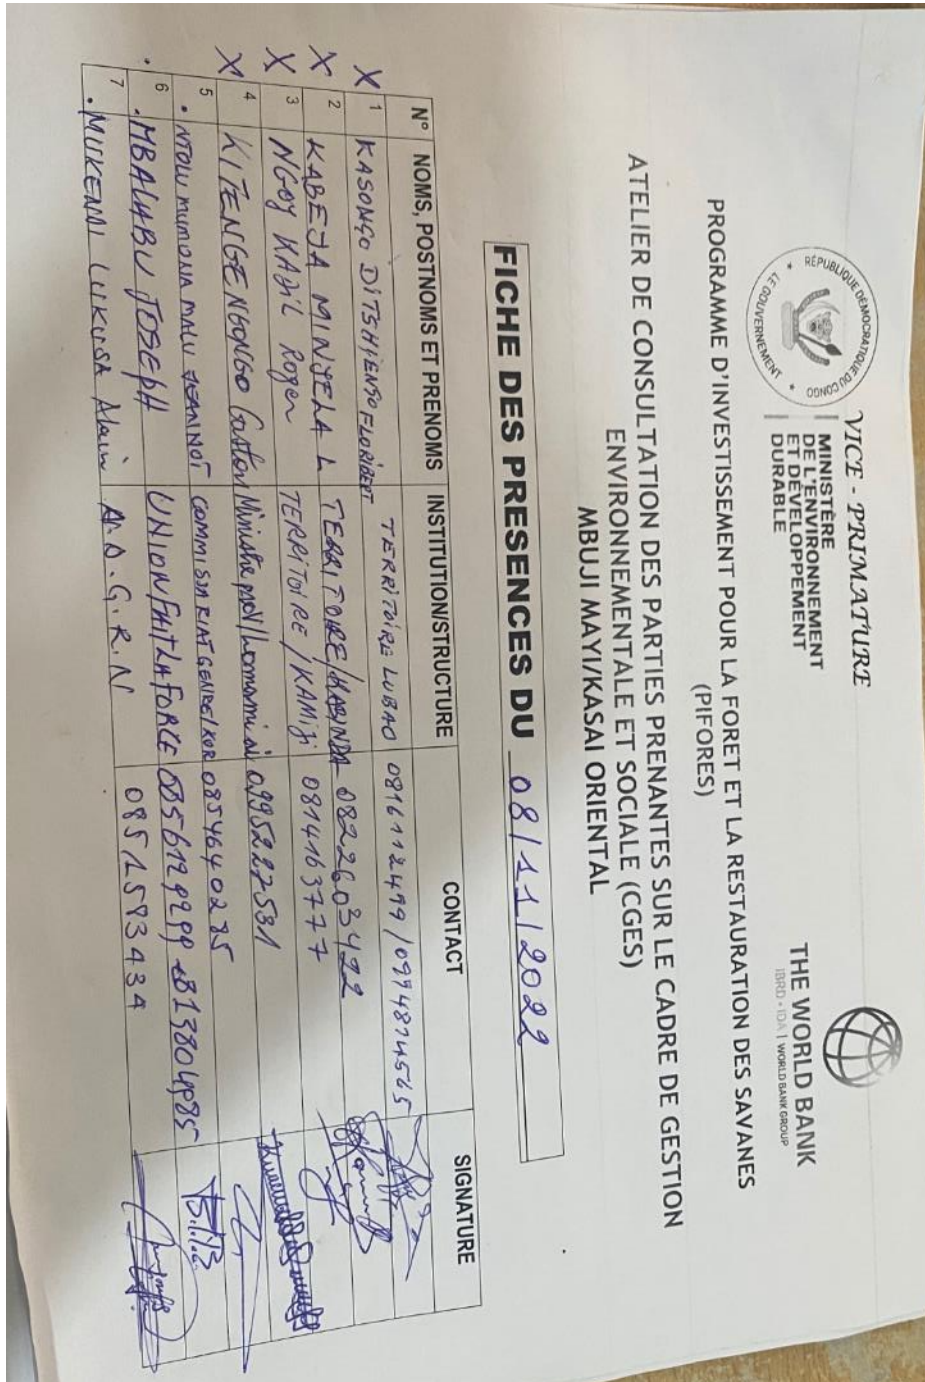 RÉPUBLIQUE DÉMOCRATIQUE DU CONGO
LE GOUVERNEMENT
VICE - PRIMATURE
MINISTÈRE
DE L'ENVIRONNEMENT
ET DÉVELOPPEMENT
DURABLE
THE WORLD BANK
IBRD • IDA | WORLD BANK GROUP
PROGRAMME D'INVESTISSEMENT POUR LA FORET ET LA RESTAURATION DES SAVANES
(PIFORES)
ATELIER DE CONSULTATION DES PARTIES PRENANTES SUR LE CADRE DE GESTION
ENVIRONNEMENTALE ET SOCIALE (CGES)
MBUJI MAYI/KASAI ORIENTAL
FICHE DES PRESENCES DU 08/11/2022
N° NOMS, POSTNOMS ET PRENOMS INSTITUTION/STRUCTURE CONTACT SIGNATURE
X 1 KASONGO DITSHIENSO FLORIBERT TERRITOIRE LUBAO 0816112499/0994874565
X 2 KABEJA MINYELA L TERRITOIRE/KABINDA 0822603422
X 3 NGOY KAJIL Roger TERRITOIRE/KAMIJI 0814163777
X 4 KITENGE NGONGO Gaston Ministre prov/Lomami 0995227581
5 NTOLU MUMONA MALU JEANNOT COMMISSARIAT GENRE/KOR 0854640285
6 MBALABU JOSEPH UNION FAIT LA FORCE
7 MUKENDI LUKUSA Alain A.D.G.R.N 0851593434